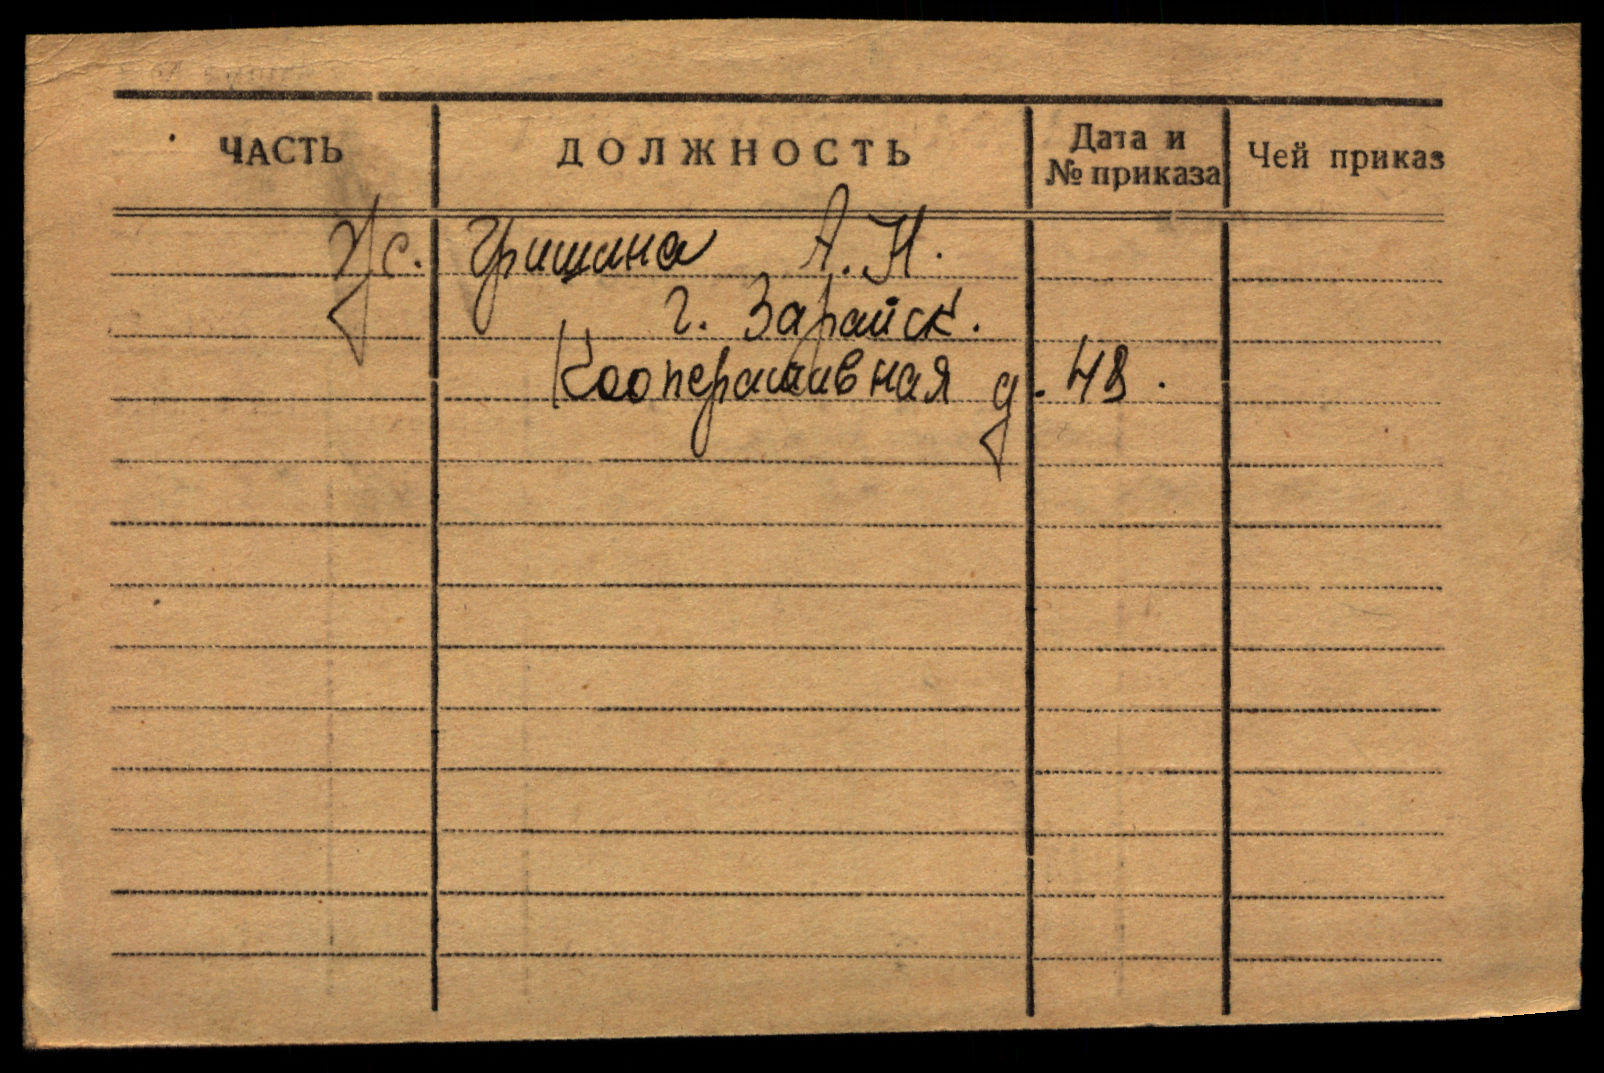 ЧАСТЬ ДОЛЖНОСТЬ Дата и № приказа Чей приказ
ж/с. Гришина А. Н.
г. Зарайск.
Кооперативная д. 48.